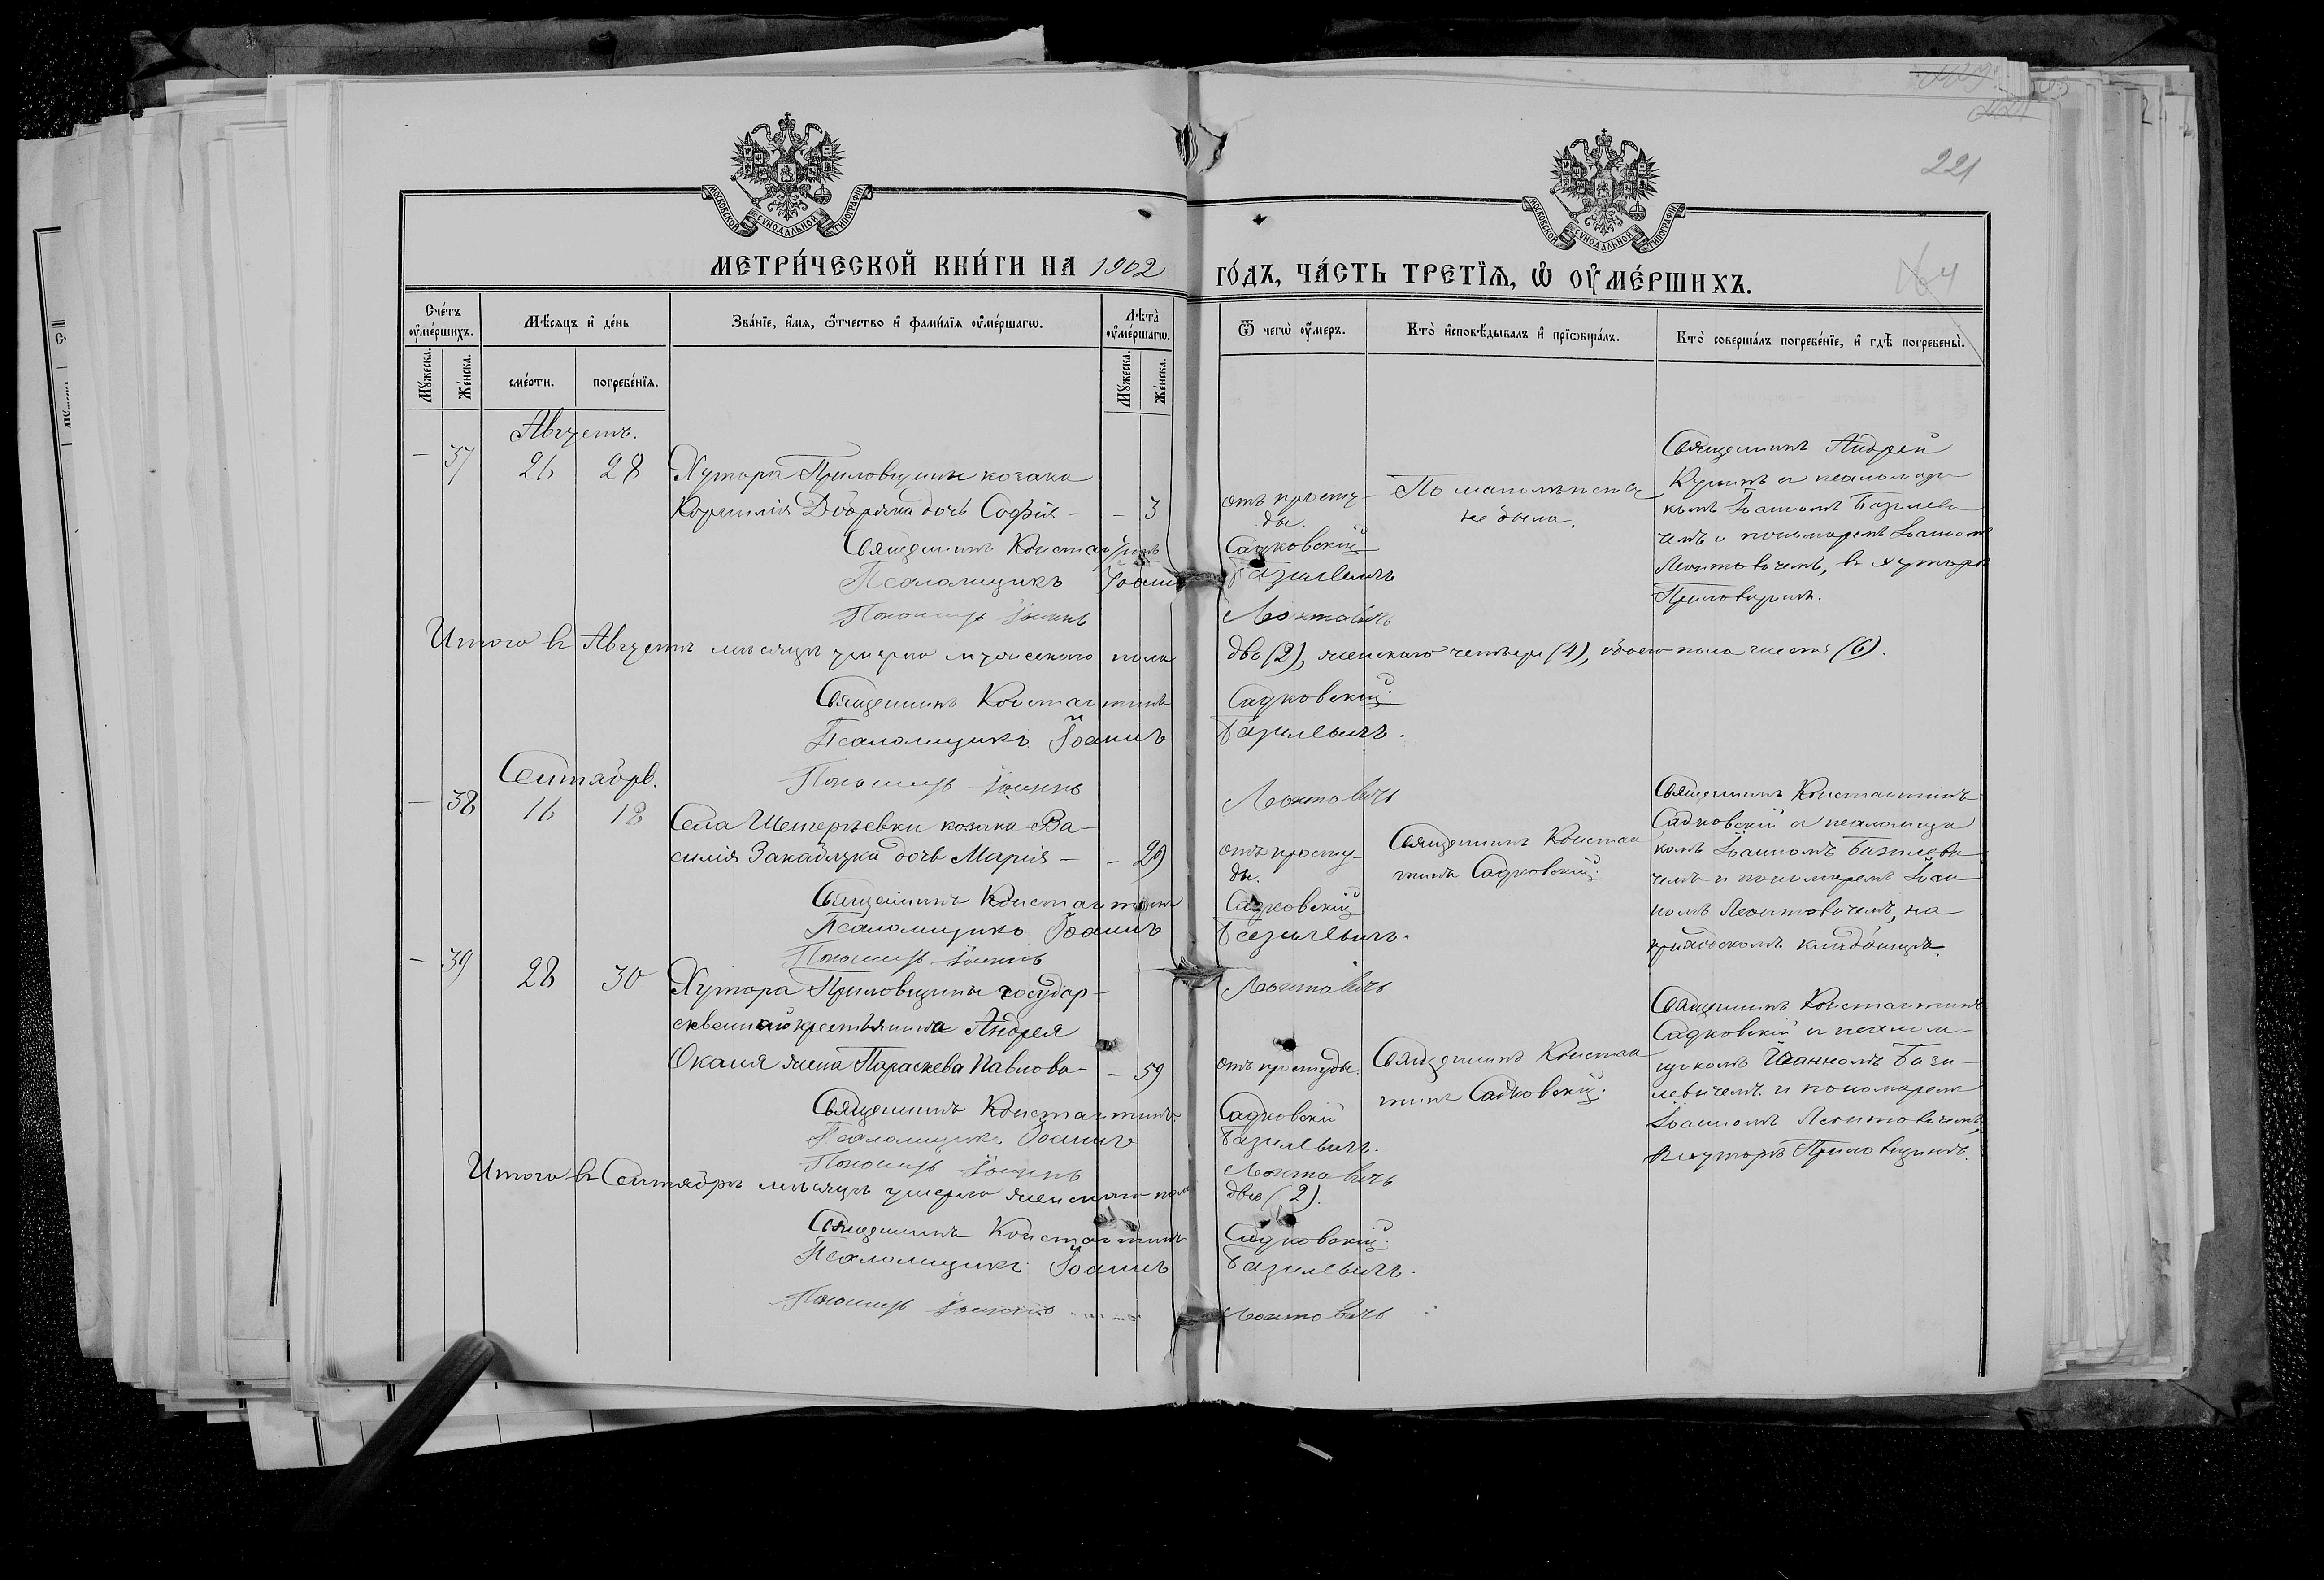 221
МОСКОВСКОЙ СѴНОДАЛЬНОЙ ТИПОГРАФІИ
МОСКОВСКОЙ СѴНОДАЛЬНОЙ ТИПОГРАФІИ
МЕТРИ́ЧЕСКОЙ КНИ́ГИ НА 1902
ГО́ДЪ, ЧА́СТЬ ТРЕТІѦ, Ѡ҆ ОУ҆МЕ́РШИХЪ.
Сче́тъ оу҆ме́ршихъ.
Мѣ́сяцъ и҆ де́нь
Зва́нїе, и҆́мя, ѻ҆́тчество и҆ фами́лїя оу҆ме́ршагѡ.
Лѣ́та̀ оу҆ме́ршагѡ.
Ѿ чегѡ̀ оу҆́меръ.
Кто̀ и҆сповѣ́дывалъ и҆ прїѡбща́лъ.
Кто̀ соверша́лъ погребе́нїе, и҆ гдѣ̀ погребены̀.
Мꙋ́жеска.
Же́нска.
сме́рти.
погребе́нїя.
Мꙋ́жеска.
Же́нска.
Августъ.
— 37 26 28 Хутора Приловщины козака
Корнилія Добряка дочь Софія — — 3
отъ просту-
ды.
По малолѣтству
не была.
Священникъ Андрей
и псаломщи-
комъ Іоанномъ Базилеви-
чемъ и пономаремъ Іоанномъ
Леонтовичемъ, въ хуторѣ
Приловщинѣ.
Священникъ Константинъ Садковскій
Псаломщикъ Іоаннъ Базилевичъ
Пономарь Іоаннъ Леонтовичъ
Итого въ Августѣ мѣсяцѣ умерло мужескаго пола два (2), женскаго четыре (4), обоего пола шесть (6).
Священникъ Константинъ Садковскій.
Псаломщикъ Іоаннъ Базилевичъ.
Пономарь Іоаннъ Леонтовичъ
Сентябрь.
— 38 16 18 Села козака Ва-
силія Закаблука дочь Марія — — 29
отъ просту-
ды.
Священникъ Констан
тинъ Садковскій.
Священникъ Константинъ
Садковскій и псаломщи
комъ Іоанномъ Базилеви-
чемъ и пономаремъ Іоан
номъ Леонтовичемъ, на
приходскомъ кладбищѣ.
Священникъ Константинъ Садковскій
Псаломщикъ Іоаннъ Базилевичъ.
Пономарь Іоаннъ Леонтовичъ
— 39 28 30 Хутора Приловщины государ-
ственнаго крестьянина Андрея
Оканя жена Параскева Павлова — — 59
отъ простуды.
Священникъ Констан
тинъ Садковскій.
Священникъ Константинъ
Садковскій и псалом-
щикомъ Іоанномъ Бази-
левичемъ и пономаремъ
Іоанномъ Леонтовичемъ,
въ хуторѣ Приловщинѣ.
Священникъ Константинъ Садковскій
Псаломщикъ Іоаннъ Базилевичъ.
Пономарь Іоаннъ Леонтовичъ
Итого въ Сентябрѣ мѣсяцѣ умерло женскаго пола двѣ (2).
Священникъ Константинъ Садковскій.
Псаломщикъ Іоаннъ Базилевичъ.
Пономарь Іоаннъ Леонтовичъ